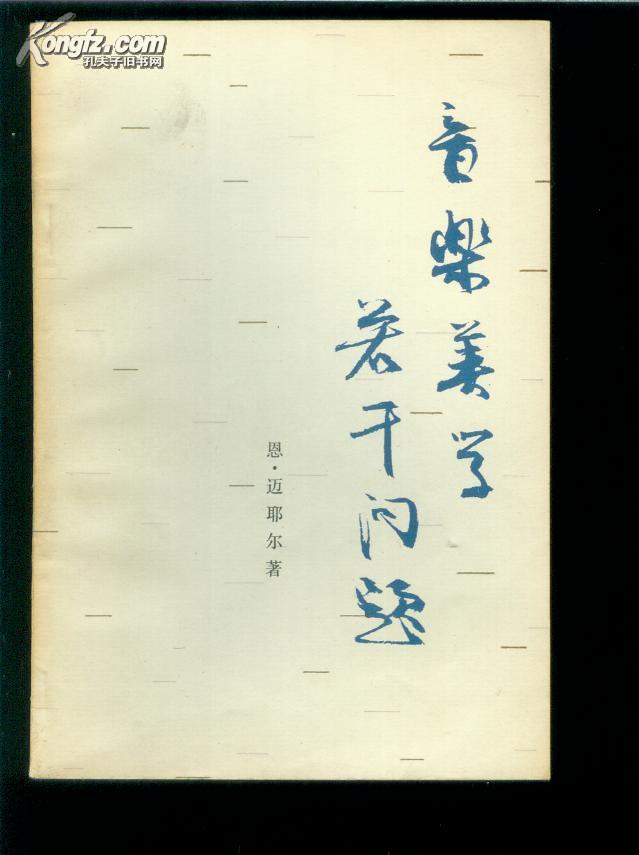 Kongfz.com
孔夫子旧书网
音樂美学
若干问题
恩·迈耶尔著